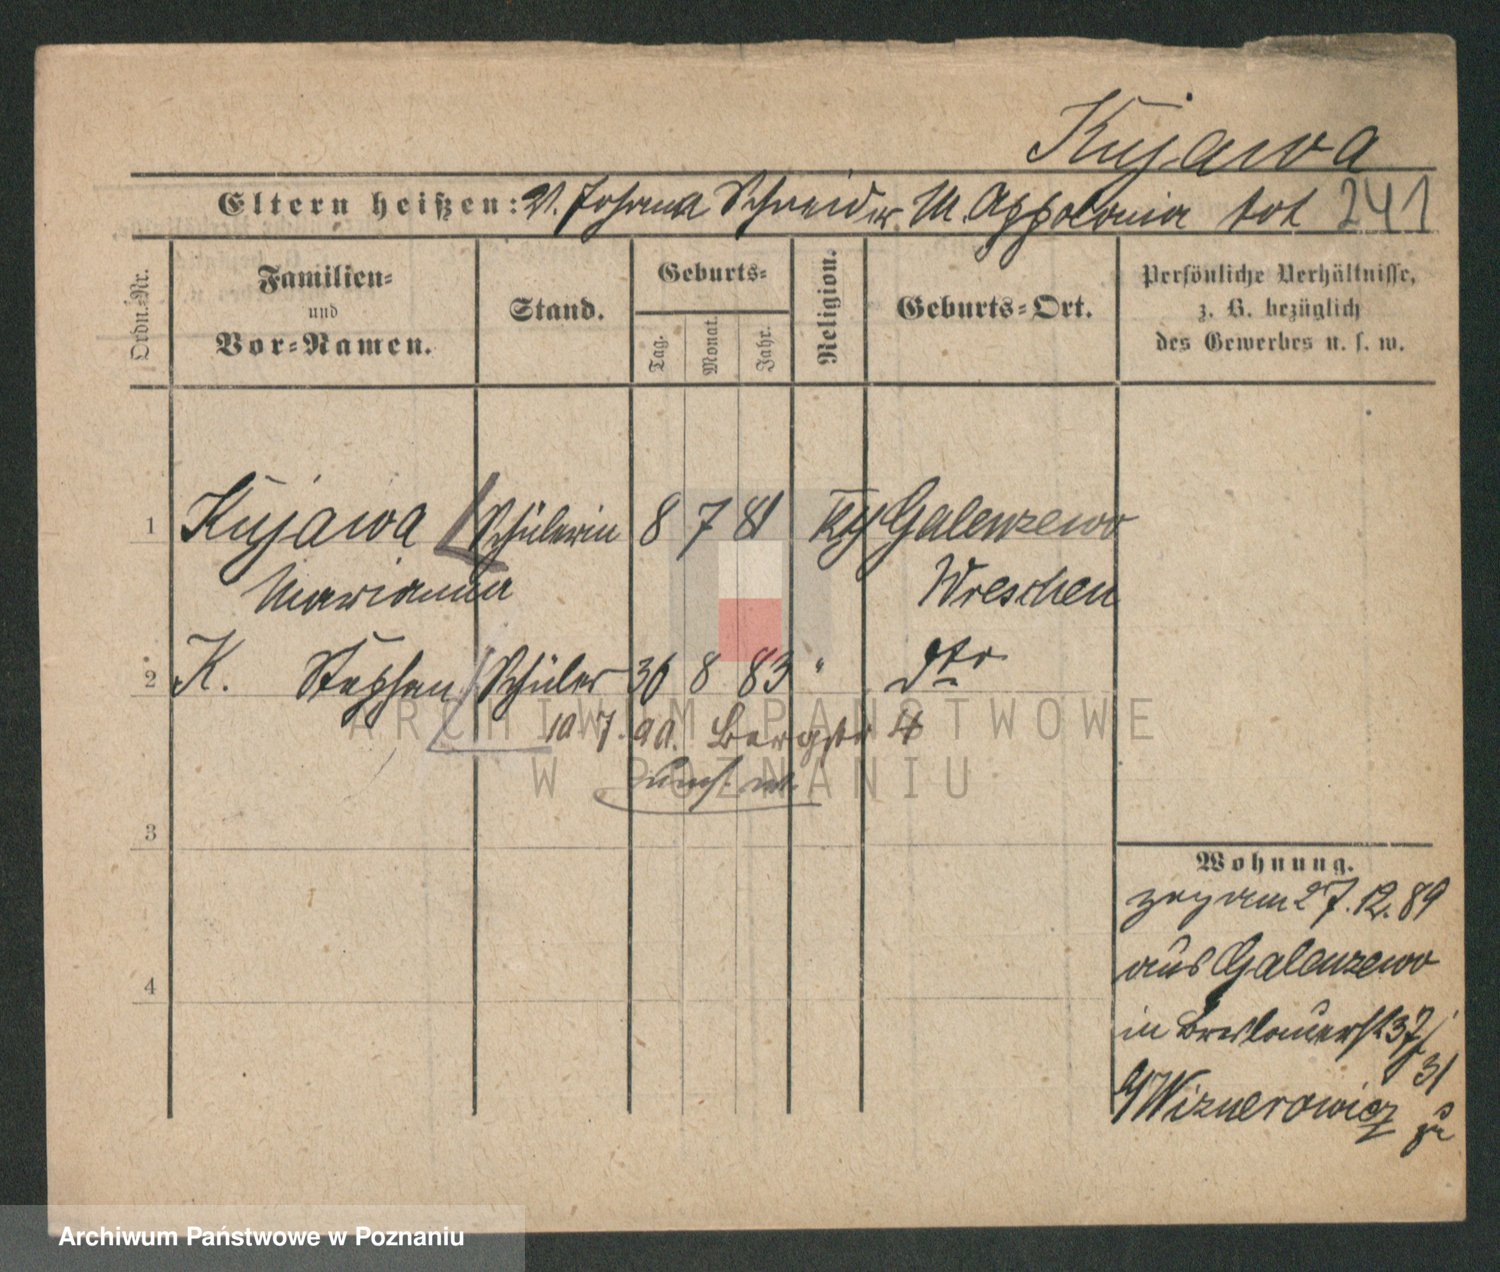 Kujawa
Eltern heißen: V. Johann Schneider M. Appolonia tot 241
Ordn.-Nr.
Familien-
und
Vor-Namen.
Stand.
Geburts-
Tag.
Monat.
Jahr.
Religion.
Geburts-Ort.
Persönliche Verhältnisse,
z. B. bezüglich
des Gewerbes u. s. w.
1 Kujawa Schülerin 8 7 81 Galenzewo
Marianna Wreschen
2 K. Stephan Schüler 8 83 " dto
10.7.90. Bergstr 4
3
Wohnung.
zog am 27.12.89
aus Galenzewo
4
in Breslauerst 37/
31
Wiznerowicz zu
ARCHIWUM PAŃSTWOWE
W POZNANIU
Archiwum Państwowe w Poznaniu